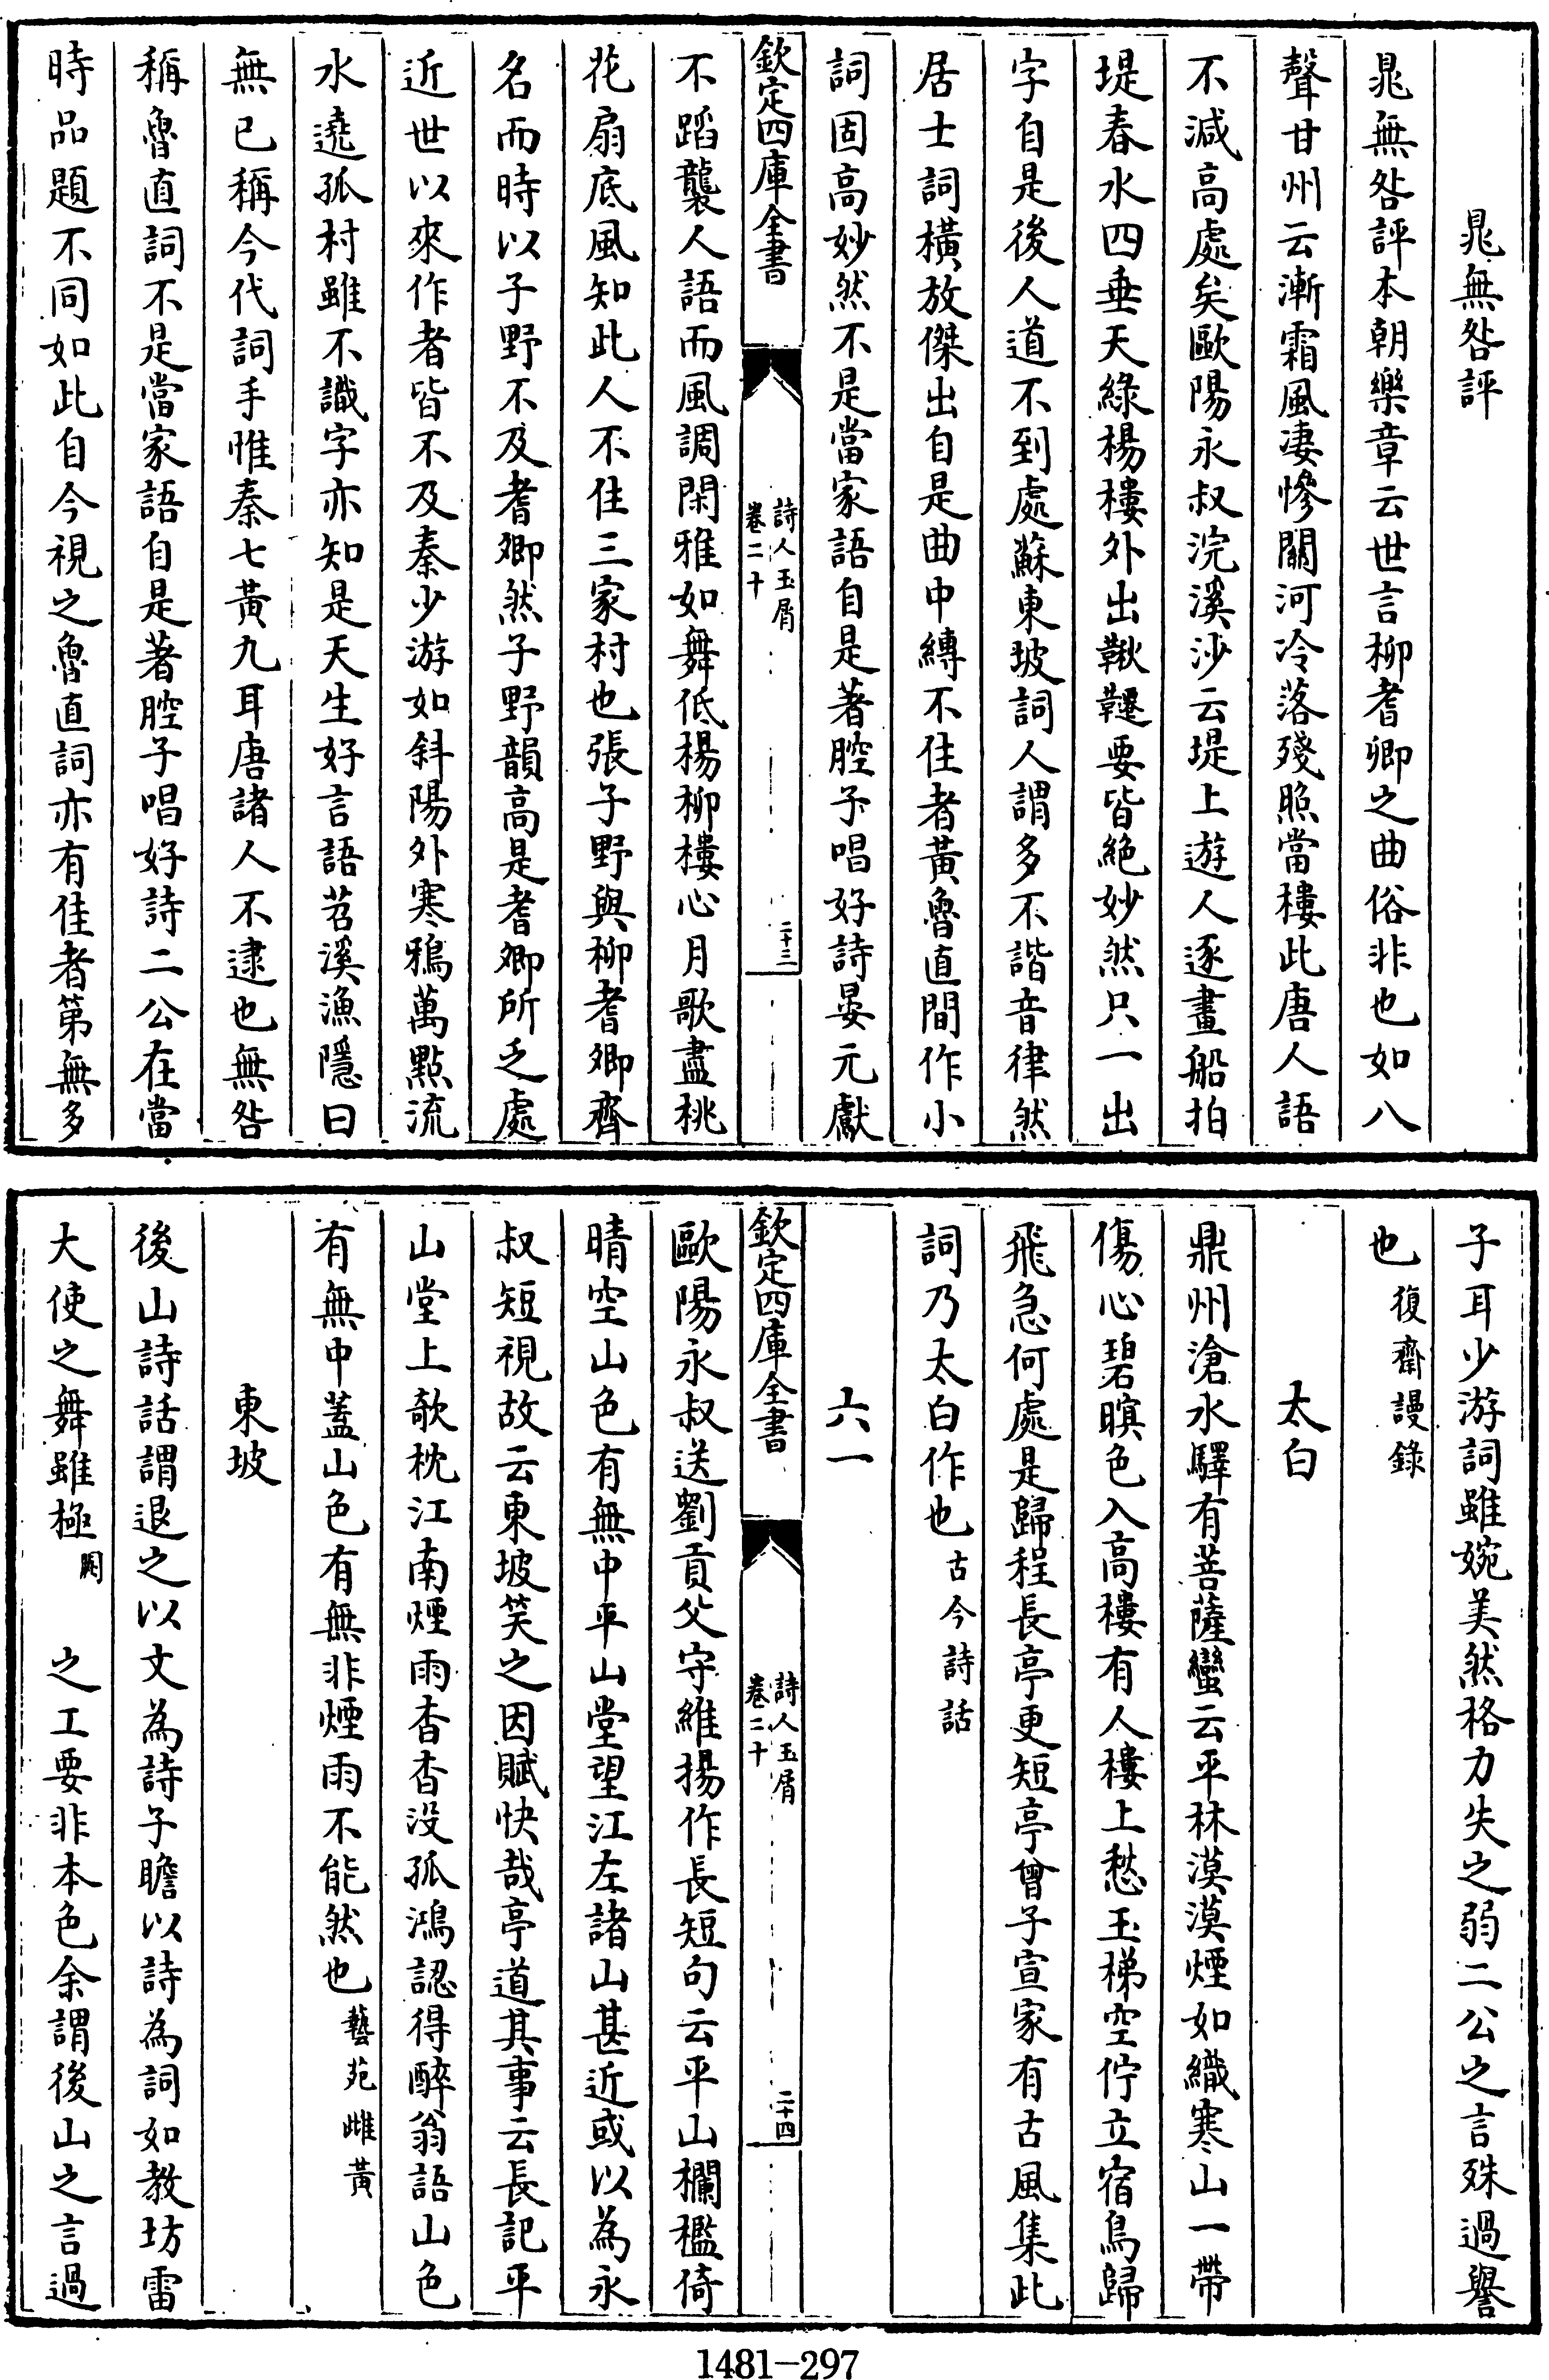 晁無咎評
晁無咎評本朝樂章云世言柳耆卿之曲俗非也如八
聲甘州云漸霜風凄慘關河冷落殘照當樓此唐人語
不減高處矣歐陽永叔浣溪沙云堤上遊人逐畫船拍
堤春水四垂天綠楊樓外出鞦韆要皆絶妙然只一出
字自是後人道不到處蘇東坡詞人謂多不諧音律然
居士詞橫放傑出自是曲中縳不住者黃魯直間作小
詞固高妙然不是當家語自是著腔子唱好詩晏元獻
欽定四庫全書
詩人玉屑
卷二十
二十三
不蹈襲人語而風調閑雅如舞低楊柳樓心月歌盡桃
花扇底風知此人不住三家村也張子野與柳耆卿齊
名而時以子野不及耆卿然子野韻高是耆卿所乏處
近世以來作者皆不及秦少游如斜陽外寒鴉萬點流
水遶孤村雖不識字亦知是天生好言語苕溪漁隱曰
無已稱今代詞手惟秦七黃九耳唐諸人不逮也無咎
稱魯直詞不是當家語自是著腔子唱好詩二公在當
時品題不同如此自今視之魯直詞亦有佳者第無多
子耳少游詞雖婉美然格力失之弱二公之言殊過譽
也 復齋謾錄
太白
鼎州滄水驛有菩薩蠻云平林漠漠煙如織寒山一帶
傷心碧暝色入高樓有人樓上愁玉梯空佇立宿鳥歸
飛急何處是歸程長亭更短亭曾子宣家有古風集此
詞乃太白作也 古今詩話
六一
欽定四庫全書
詩人玉屑
卷二十
二十四
歐陽永叔送劉貢父守維揚作長短句云平山欄檻倚
晴空山色有無中平山堂望江左諸山甚近或以為永
叔短視故云東坡笑之因賦快哉亭道其事云長記平
山堂上欹枕江南煙雨杳杳没孤鴻認得醉翁語山色
有無中蓋山色有無非煙雨不能然也 藝苑雌黃
東坡
後山詩話謂退之以文為詩子瞻以詩為詞如教坊雷
大使之舞雖極 闕 之工要非本色余謂後山之言過
1481-297